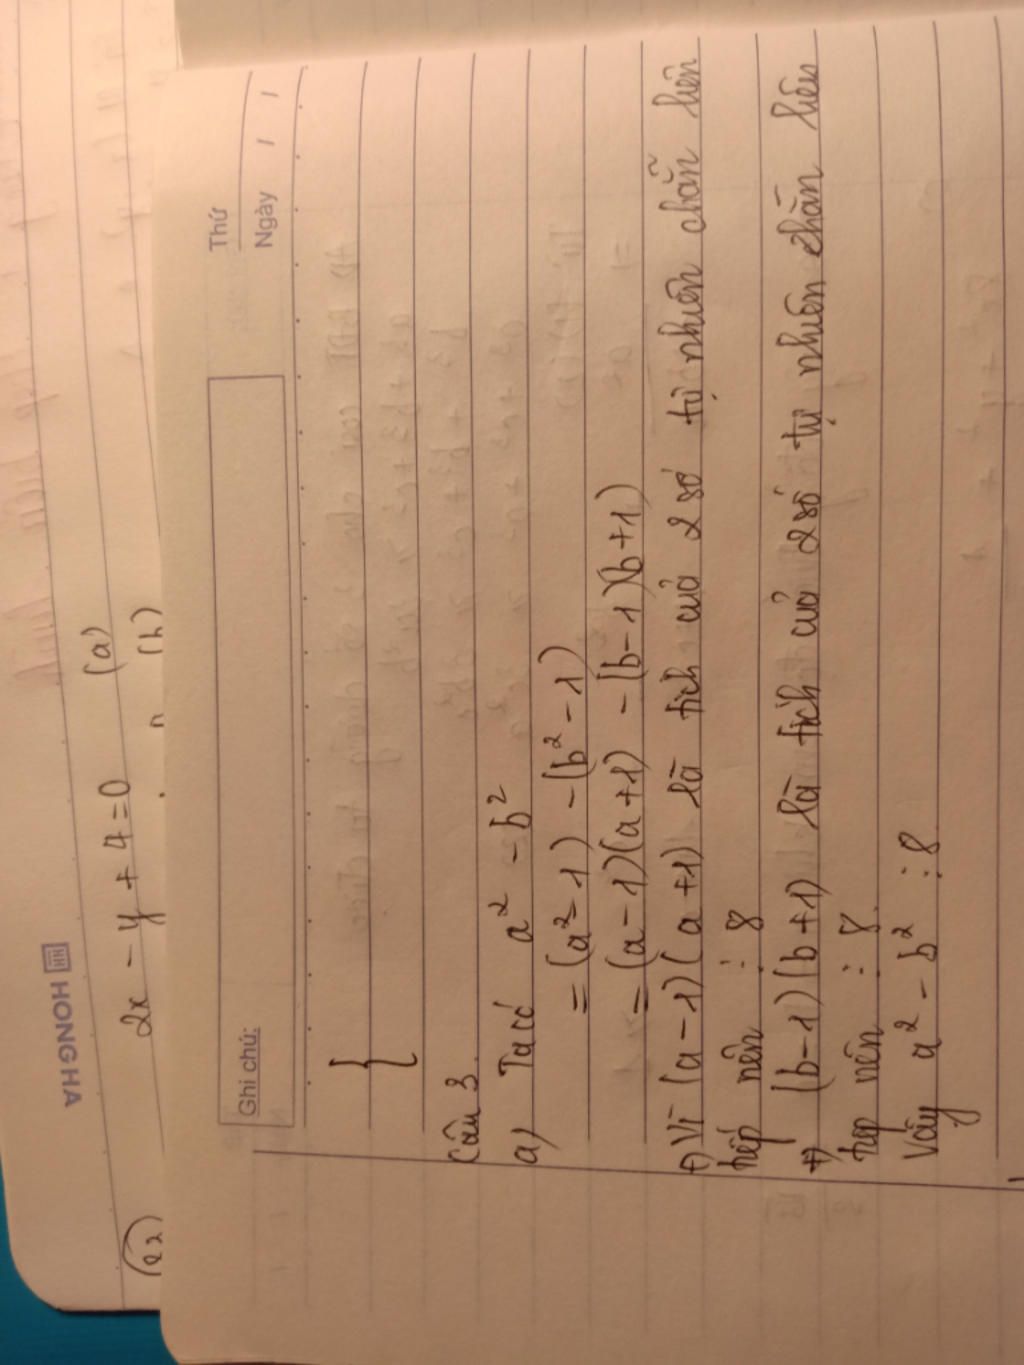 HONG HA
(a)
2x - y + 4 = 0
(b)
Ghi chú:
Thứ
Ngày / /
Câu 3
a) Ta có a² - b²
= (a² - 1) - (b² - 1)
= (a - 1)(a + 1) - (b - 1)(b + 1)
+) Vì (a - 1)(a + 1) là tích của 2 số tự nhiên chẵn liên
tiếp nên ⋮ 8
+) (b - 1)(b + 1) là tích của 2 số tự nhiên chẵn liên
tiếp nên ⋮ 8.
Vậy a² - b² ⋮ 8